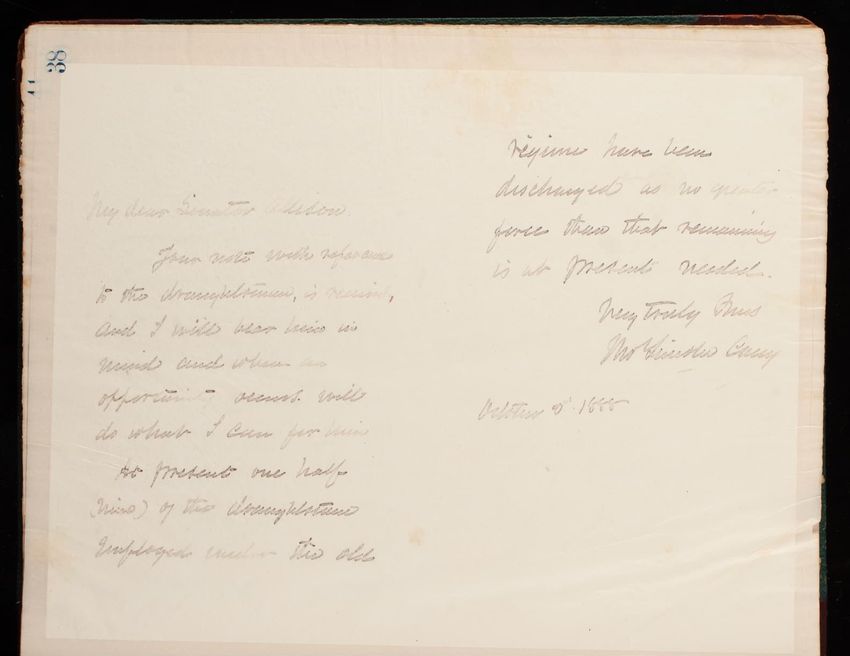 38
My dear Senator Allison
Your note with reference
to the draughtsman, is received,
and I will bear him in
mind and when an
opportunity occurs will
do what I can for him
At present one half
(nine) of the draughtsmen
employed under the old
régime have been
discharged as no greater
force than that remaining
is at present needed.
Very truly Yours
Thos Lincoln Casey
October 1888